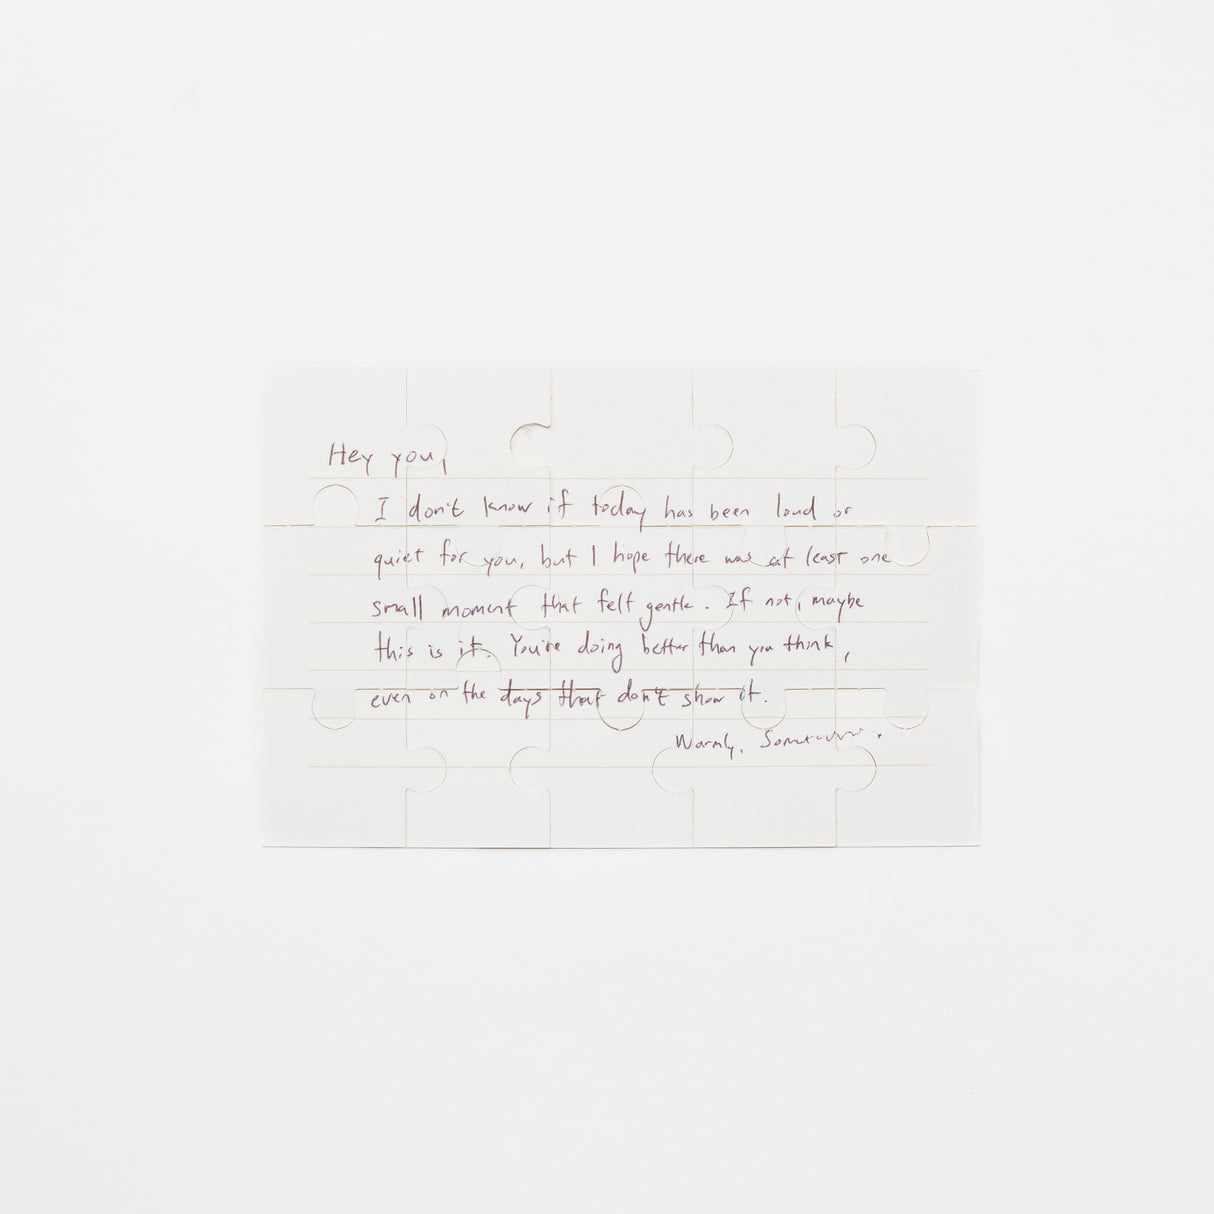 Hey you,
I don't know if today has been loud or
quiet for you, but I hope there was at least one
small moment that felt gentle. If not, maybe
this is it. You're doing better than you think,
even on the days that don't show it.
Warmly,